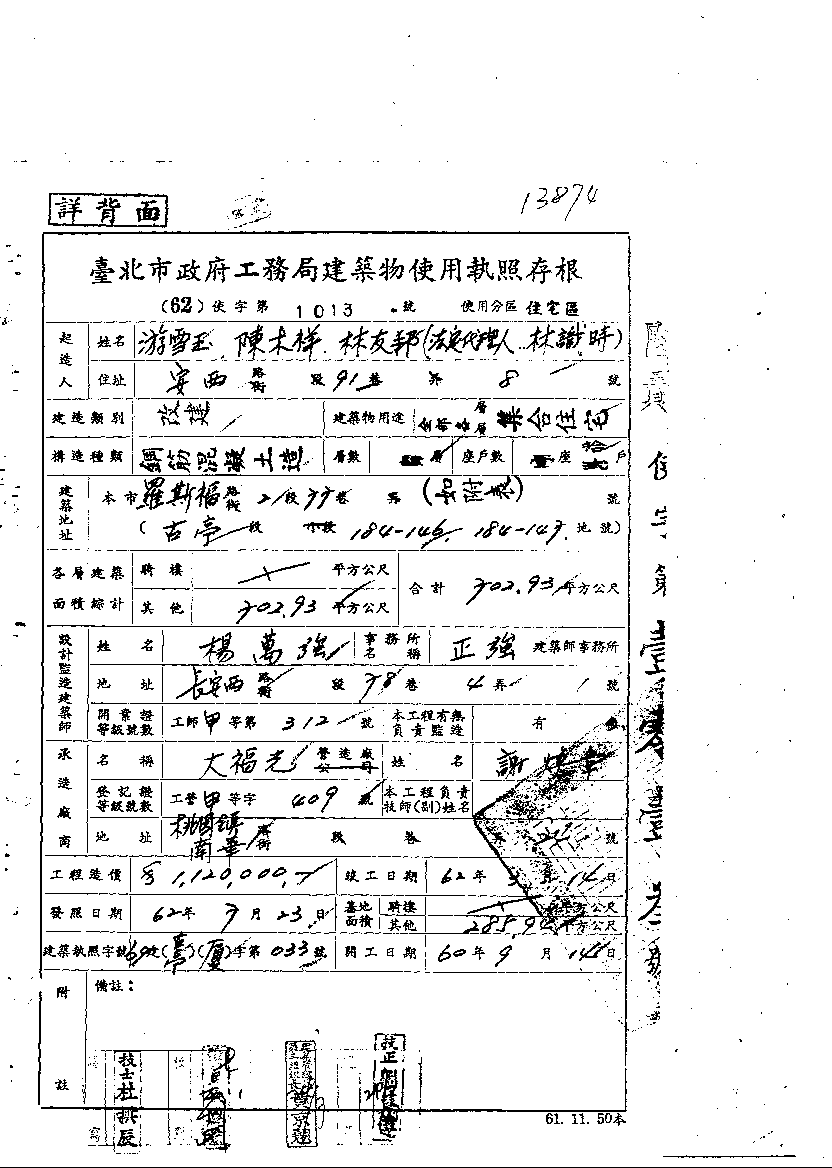 13874
詳背面
臺北市政府工務局建築物使用執照存根
(62)使字第 1013 號 使用分區 住宅區
起造人 姓名 游雪玉 陳木祥 林友邦(法定代理人 林識時)
住址 安西 路街 段 91巷 弄 8 號
建造類別 改建 建築物用途 全部各層 集合住宅
構造種類 鋼筋混凝土造 層數 層 座戶數 座 拾戶
建築地址 本市 羅斯福 路街 2段 巷 弄 (如附表) 號
(古亭段 小段 184-146. 184-147 地號)
各層建築面積綜計 騎樓 平方公尺 合計 702.93 平方公尺
其他 702.93 平方公尺
設計監造建築師 姓名 楊萬強 事務所名稱 正強 建築師事務所
地址 長安西 路街 段 78巷 4弄 1號
開業證等級號數 工師甲等第 312 號 本工程有無負責監造 有
承造廠商 名稱 大福光 營造廠公司 姓名 謝
登記證等級號數 工營甲等字 409 號 本工程負責技師(副)姓名
地址 桃園鎮南華 路街 段 巷 弄 22 號
工程造價 $1,120,000 竣工日期 62年 月14日
發照日期 62年7月23日 基地面積 騎樓 平方公尺
其他 285.94 平方公尺
建築執照字號 建()()字第033號 開工日期 60年9月14日
附註 備註:
技士杜
技正
61.11.50本
使字第壹零壹參號